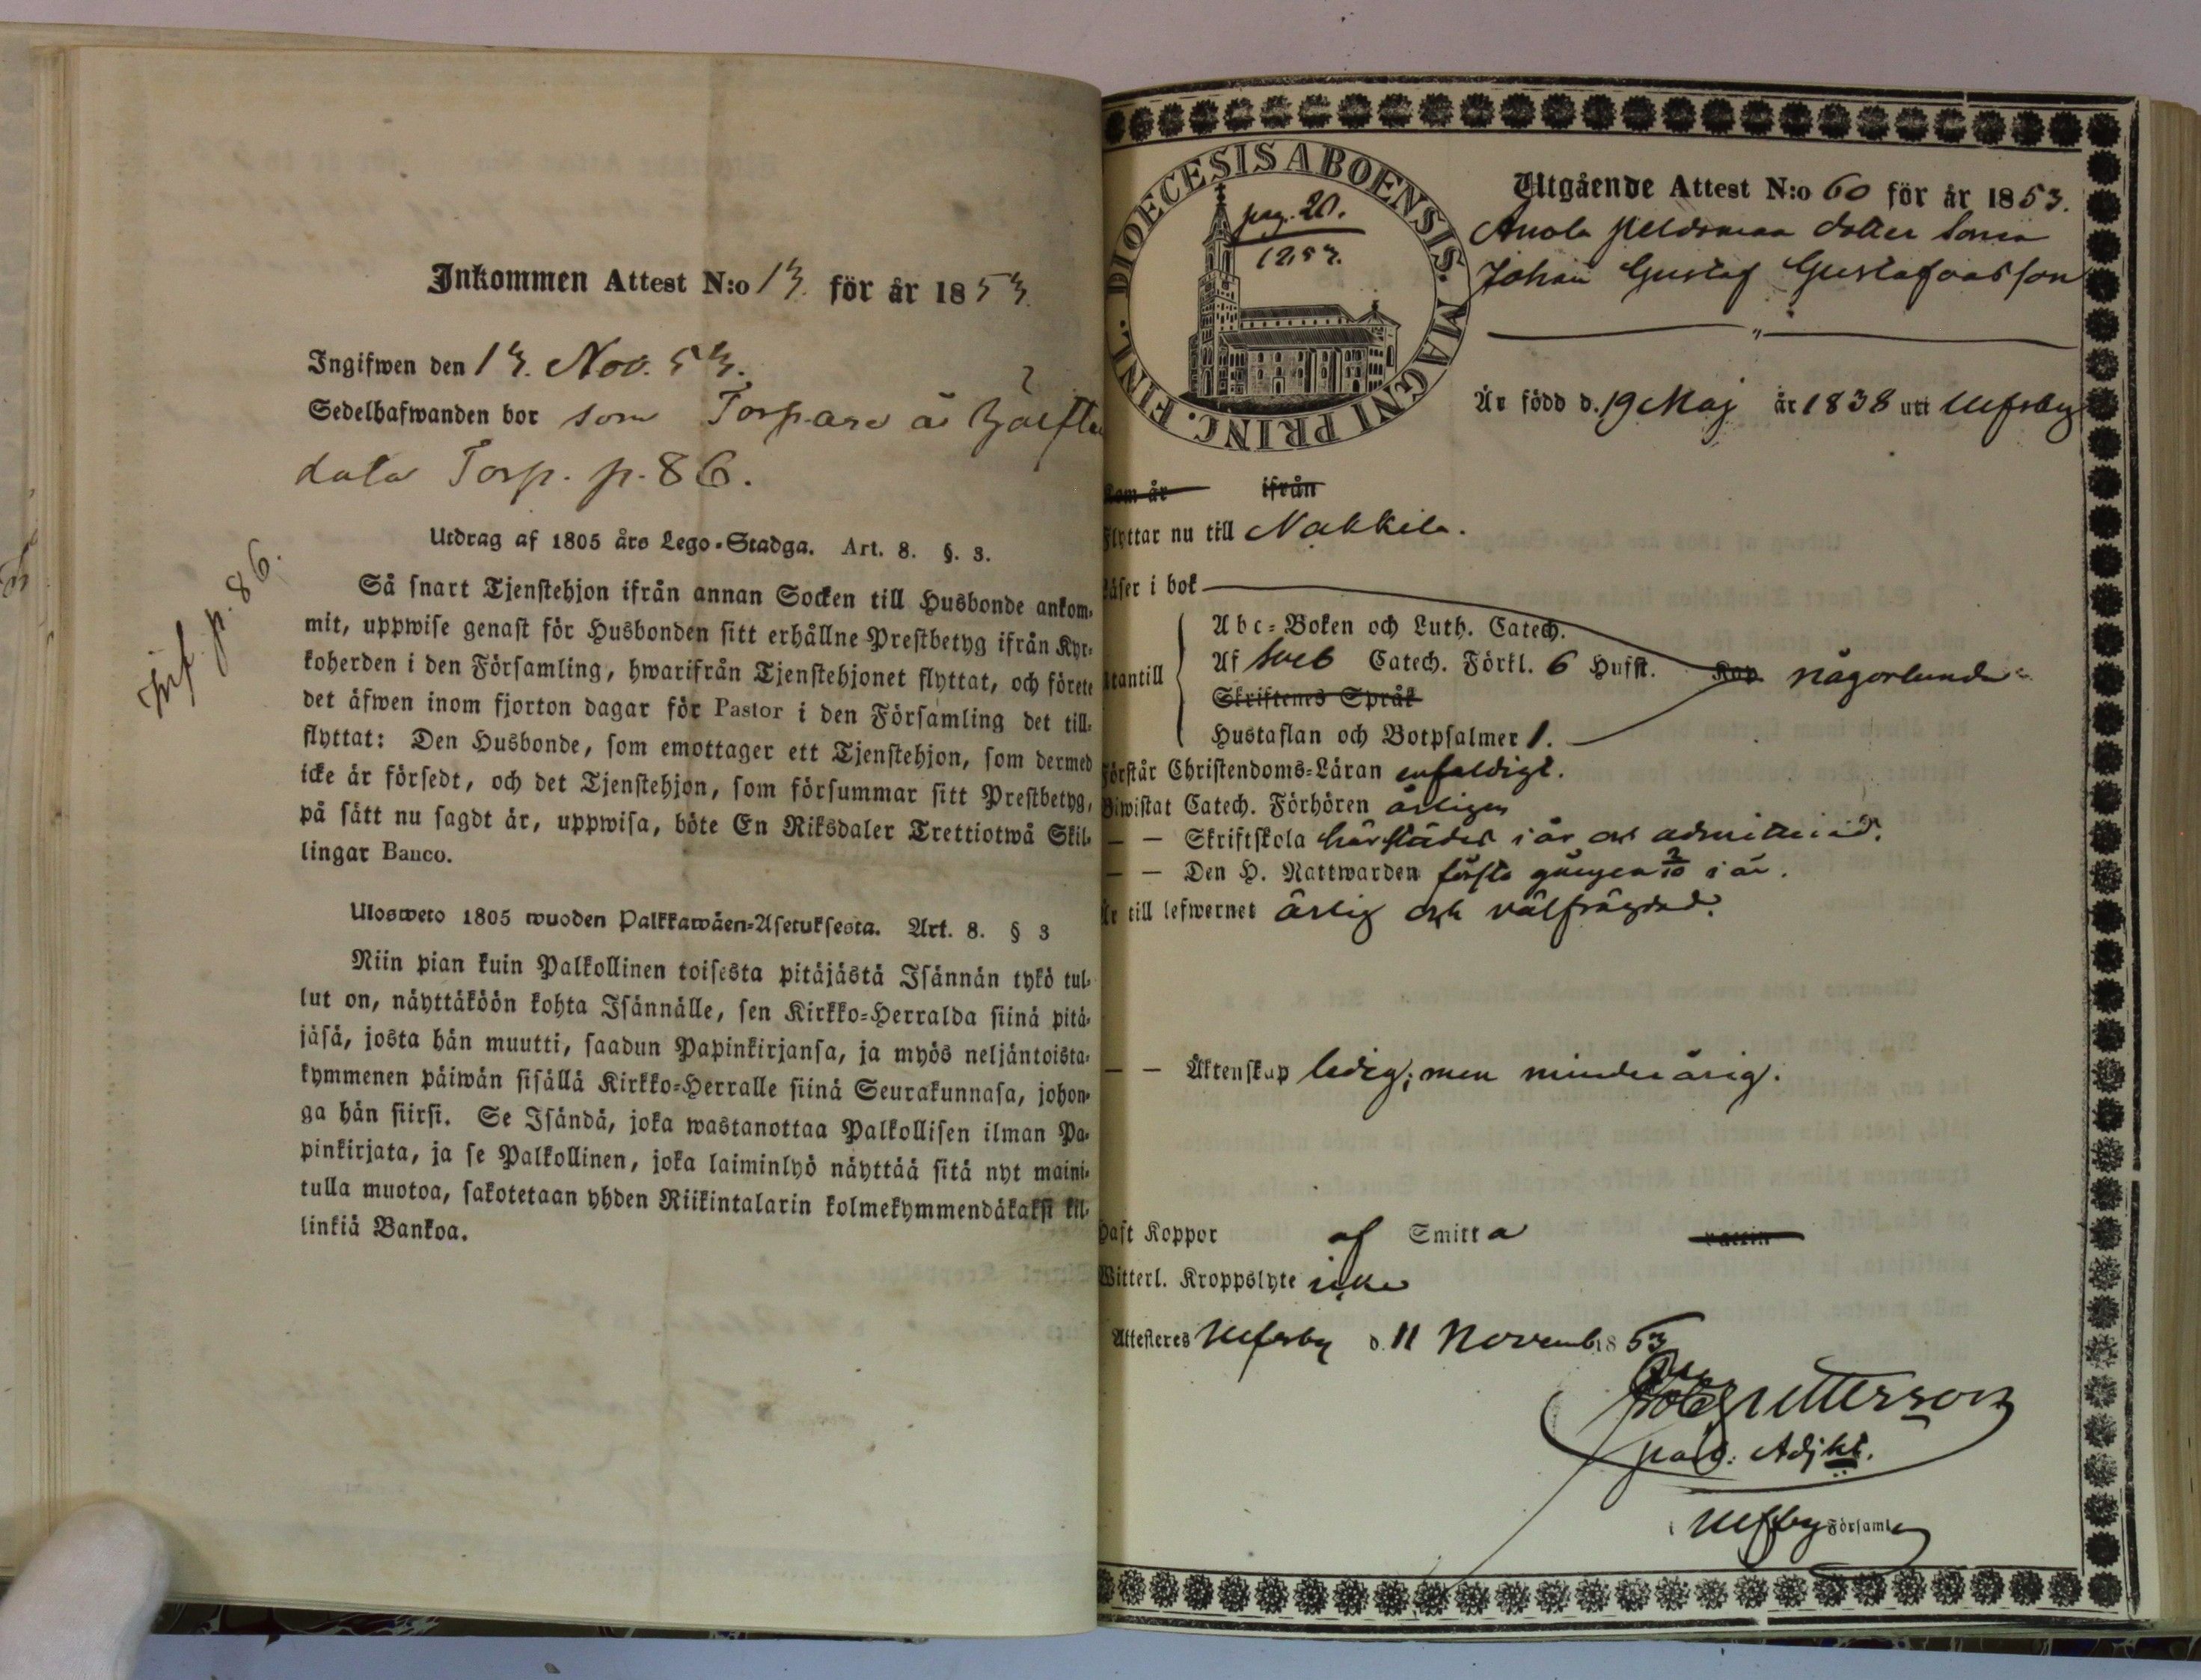 Inkommen Attest N:o 13. för år 1853.
Ingifwen den 13. Nov. 53.
Sedelhafwanden bor som Torpare å
Torp. p. 86.
p. 86.
Utdrag af 1805 års Lego-Stadga. Art. 8. §. 3.
Så snart Tjenstehjon ifrån annan Socken till Husbonde ankom-
mit, uppwise genast för Husbonden sitt erhållne Prestbetyg ifrån Kyr-
koherden i den Församling, hwarifrån Tjenstehjonet flyttat, och förete
det äfwen inom fjorton dagar för Pastor i den Församling det till-
flyttat: Den Husbonde, som emottager ett Tjenstehjon, som dermed
icke är försedt, och det Tjenstehjon, som försummar sitt Prestbetyg,
på sätt nu sagdt är, uppwisa, böte En Riksdaler Trettiotwå Skil-
lingar Banco.
Ulosweto 1805 wuoden Palkkawäen-Asetuksesta. Art. 8. § 3
Niin pian kuin Palkollinen toisesta pitäjästä Isännän tykö tul-
lut on, näyttäköön kohta Isännälle, sen Kirkko-Herralda siinä pitä-
jäsä, josta hän muutti, saadun Papinkirjansa, ja myös neljäntoista-
kymmenen päiwän sisällä Kirkko-Herralle siinä Seurakunnasa, johon-
ga hän siirsi. Se Isändä, joka wastanottaa Palkollisen ilman Pa-
pinkirjata, ja se Palkollinen, joka laiminlyö näyttää sitä nyt maini-
tulla muotoa, sakotetaan yhden Riikintalarin kolmekymmendäkaksi kil-
linkiä Bankoa.
FINL. DIOECESIS ABOENSIS. MAGNI PRINC.
pag. 20.
1253.
Utgående Attest N:o 60 för år 1853.
Anola
Johan Gustaf Gustafsson
Är född d. 19 Maj år 1838 uti Ulfsby
Kom år ifrån
Flyttar nu till Nakkila.
Läser i bok
Abc-Boken och Luth. Catech.
Utantill Af Sveb Catech. Förkl. 6 Hufst. Kap. någorlunda
Skriftenes Språk
Hustaflan och Botpsalmer 1.
Förstår Christendoms-Läran enfaldigt.
Biwistat Catech. Förhören årligen
— — Skriftskola härstädes i år och admitterad.
— — Den H. Nattwarden första gången 2/10 i år.
Är till lefwernet ärlig och välfrägdad.
— — Äktenskap ledig; men minderårig.
Haft Koppor af Smitta Vaccin
Witterl. Kroppslyte icke
Attesteras Ulfsby d. 11 Novemb. 1853
past. Adjkt.
i Ulfsby Församl.